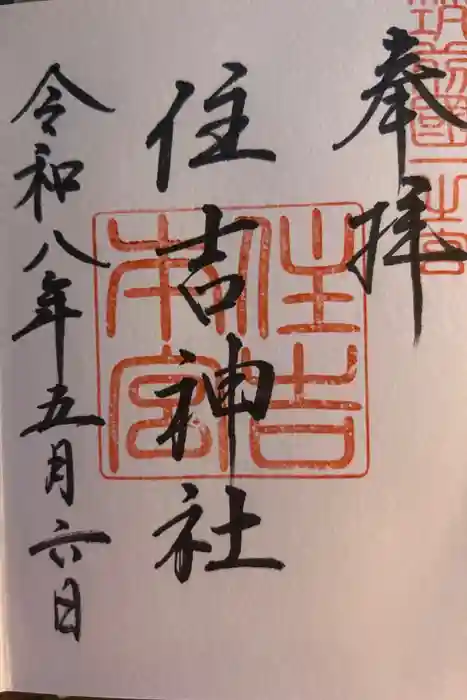 奉拝
筑前國一之宮
住吉神社
住吉本宮
令和八年五月六日